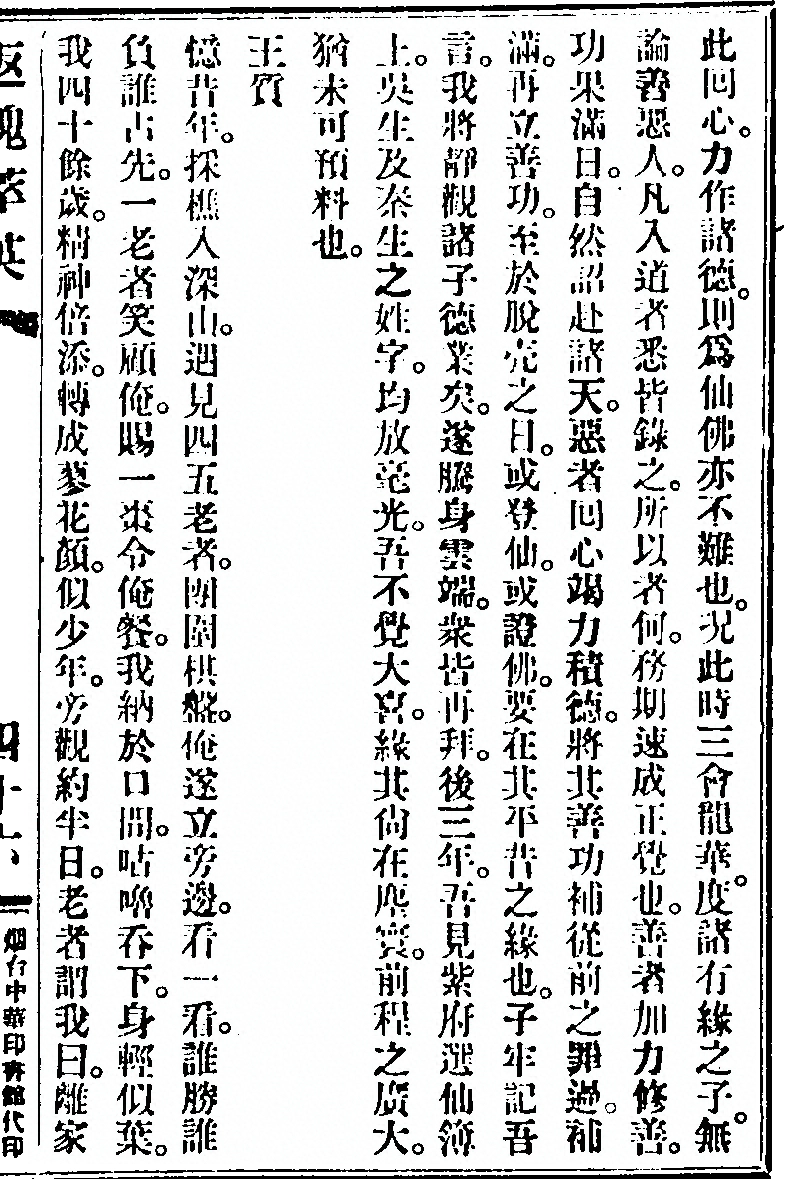 此回心。力作諸德。則爲仙佛亦不難也。况此時三會龍華。度諸有緣之子。無
論善惡人。凡入道者悉皆錄之。所以者何。務期速成正覺也。善者加力修善。
功果滿日。自然詔赴諸天。惡者回心竭力積德。將其善功補從前之罪過。補
滿。再立善功。至於脫壳之日。或登仙。或證佛。要在其平昔之緣也。子牢記吾
言。我將靜觀諸子德業矣。遂騰身雲端。衆皆再拜。後三年。吾見紫府選仙簿
上。吳生及秦生之姓字。均放毫光。吾不覺大喜。緣其尙在塵寰。前程之廣大。
猶未可預料也。
王質
憶昔年。採樵入深山。遇見四五老者。團圍棋盤。俺遂立旁邊。看一看。誰勝誰
負誰占先。一老者笑顧俺。賜一棗令俺餐。我納於口間。咕嚕吞下。身輕似葉。
我四十餘歲。精神倍添。轉成蓼花顏。似少年。旁觀約半日。老者謂我曰。離家
返魂萃英
四十六
烟台中華印書館代印